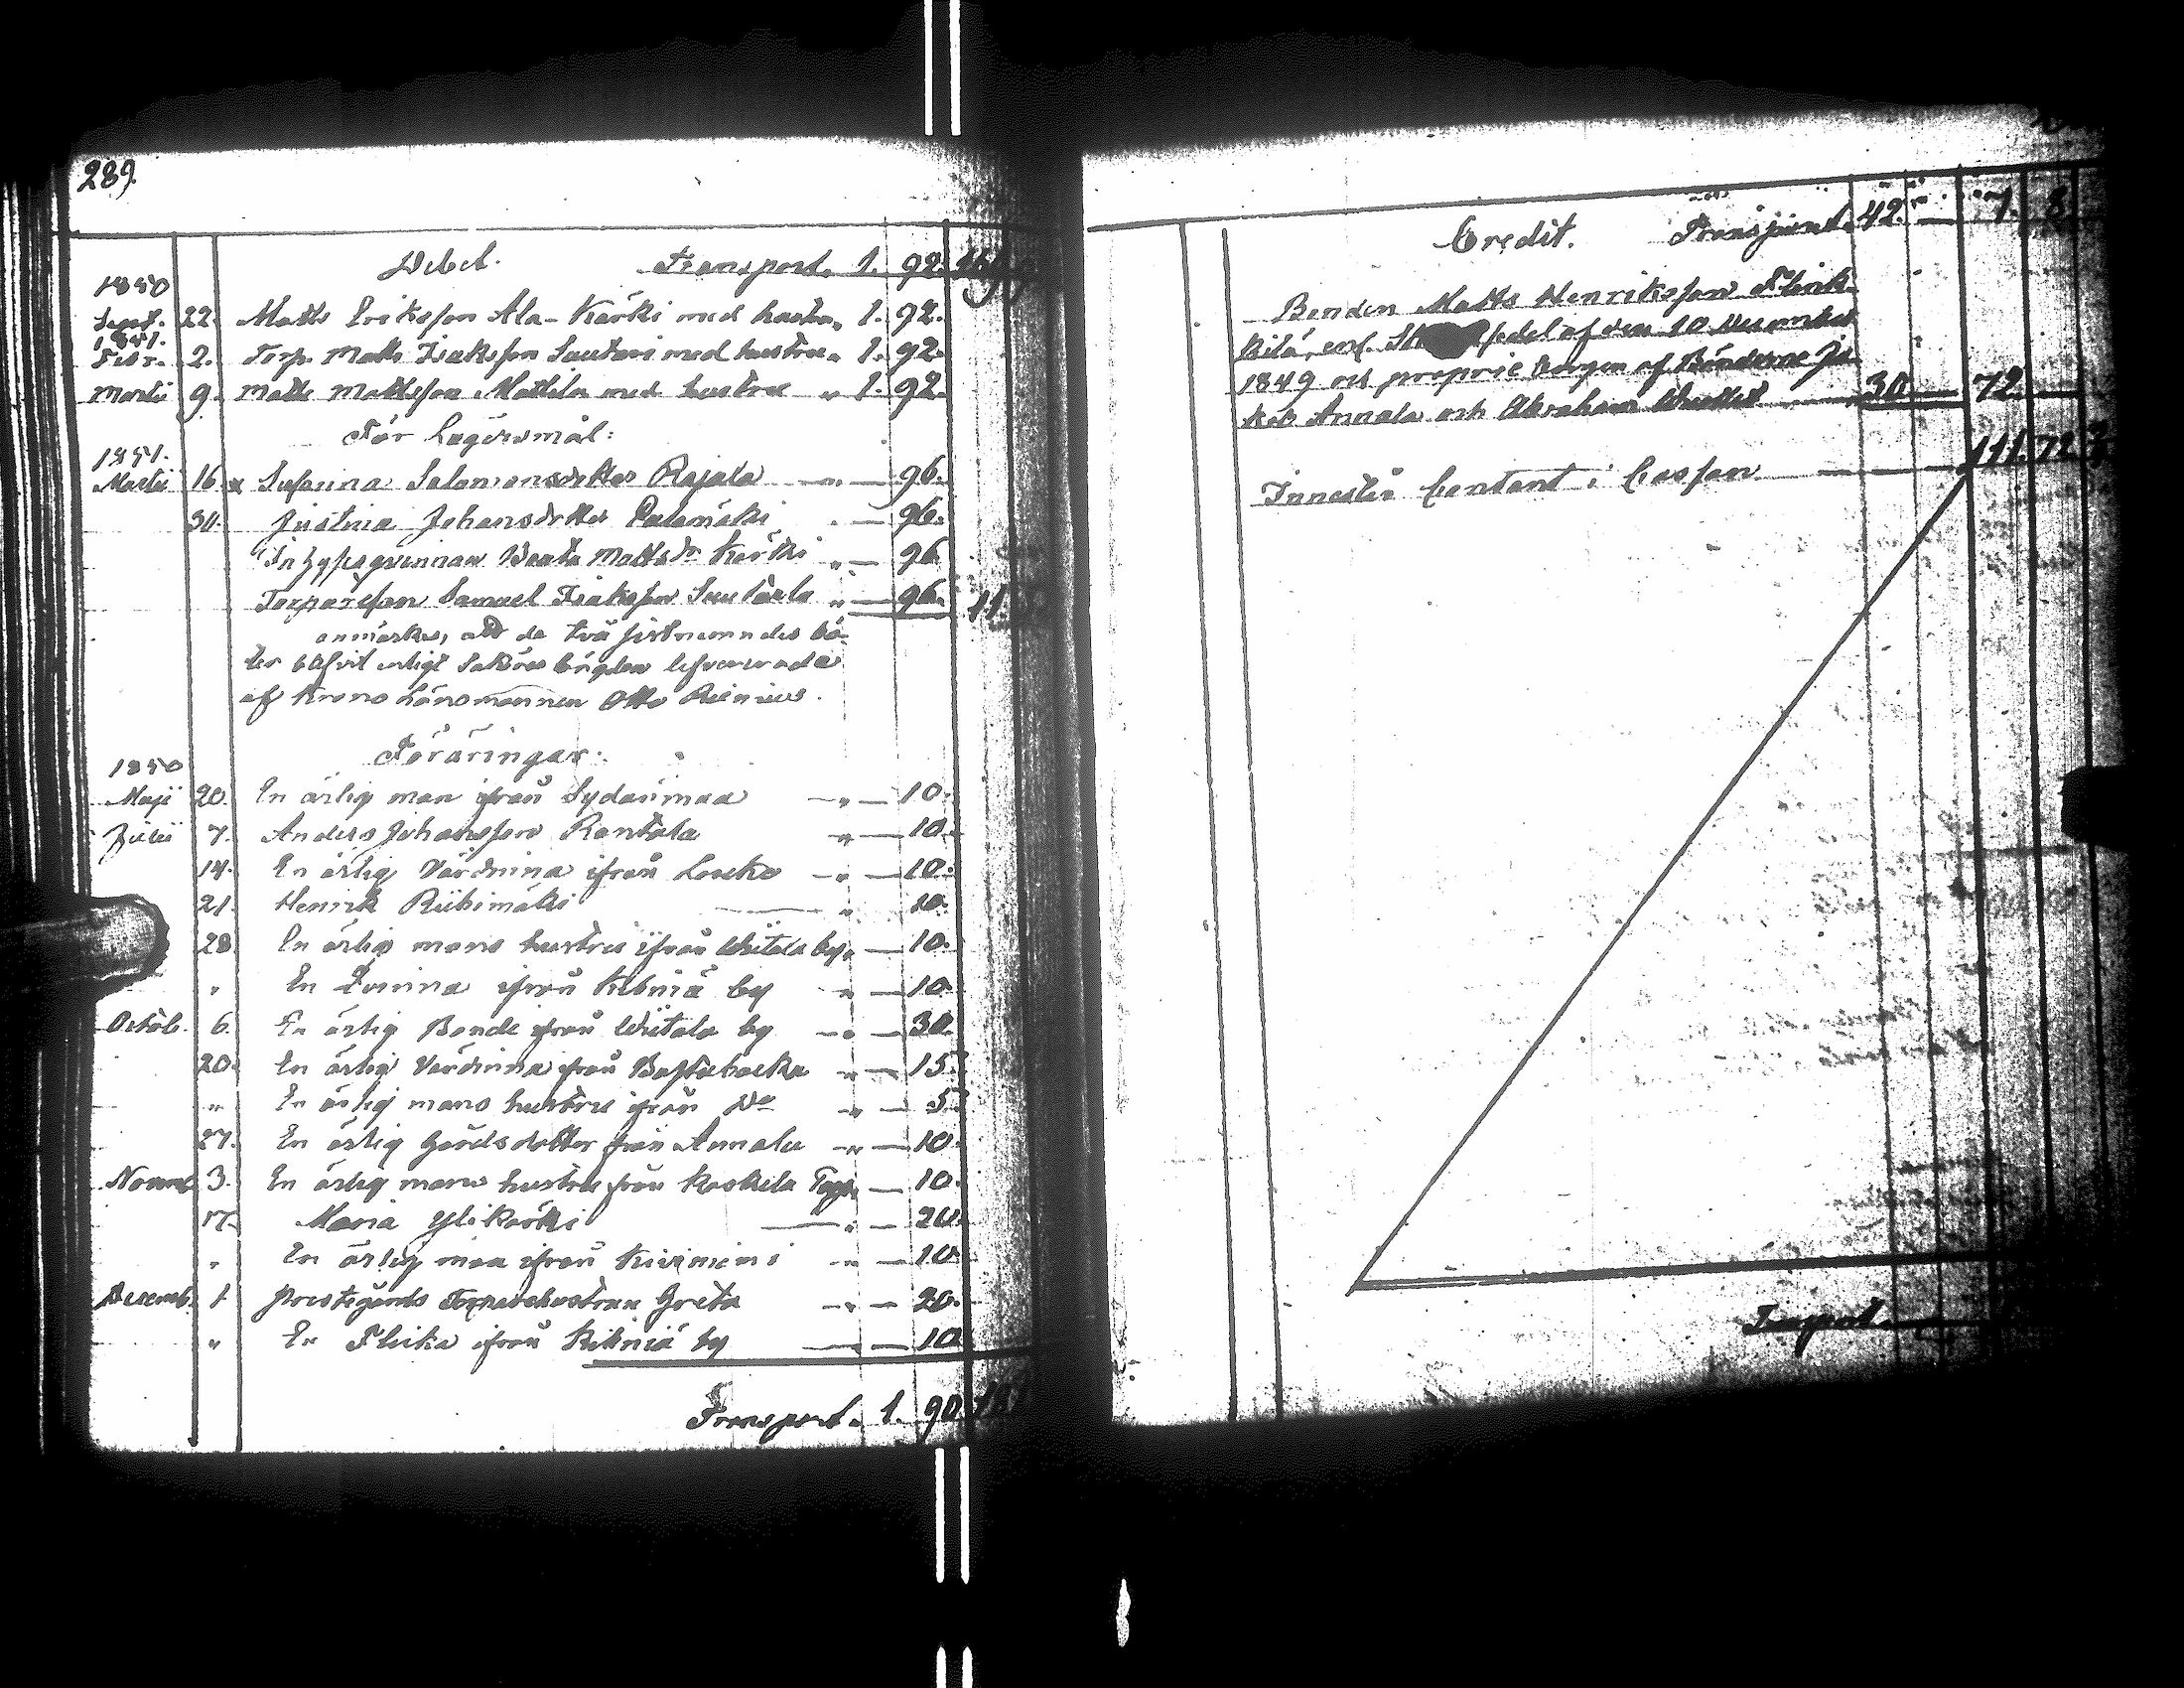 289.
Debet. Transport. 1. 92.
1850
Sept. 22. Matts Eriksson Ala-Kärki med hustru, 1. 92.
1851.
Febr. 2. Torp. Matts Isaksson Sautari med hustru 1. 92.
Martii 9. Matts Mattsson Mattila med hustru " 1. 92.
För Lägersmål:
1851.
Martii 16. x Susanna Salomonsdotter Rajala — " — 96.
30. Justina Johansdotter — 96.
Inhysesqvinnan Beata Mattsdr Kärki " — 96.
Torparesson Samuel Isaksson " — 96.
anmärkes, att de två sistnemndes bö-
ter blifvit enligt Saköres längden lefvererade
af Krono Länsmannen Otto
Föräringar:
1850
Maji 20. En ärlig man ifrån Sydänmaa — " — 10.
Julii 7. Anders Johansson Rantala " — 10.
14. En ärlig Värdinna ifrån Louko — " — 10.
21. Henrik Riihimäki — " 10.
28. En ärlig mans hustru ifrån by " — 10.
" En Qvinna ifrån Kihniä by " — 10.
Octob. 6. En ärlig Bonde ifrån by — " — 30.
20. En ärlig Värdinna ifrån " — 15.
" En ärlig mans hustru ifrån Do " — 5.
27. En ärlig Gårdsdotter från Annala " — 10.
Novemb. 3. En ärlig mans hustru från Koskela — 10.
17. Maria Ylikärki — " — 20.
" En ärlig man ifrån — " — 10.
Decemb. 1. prestegårds Torparehustrun Greta — " — 20.
" En Flicka ifrån Kihniä by — 10.
Transport. 1. 90.
Credit. Transport. 42. " — 7. 8
Bonden Matts Henriksson Flink-
kilä, enl. af den 10 December
1849 och proprie borgen af Bönderne Ja-
kob Annala och Abraham 30 — 72. —
111. 72.
Innestår Contant i Cassan —
Transport.